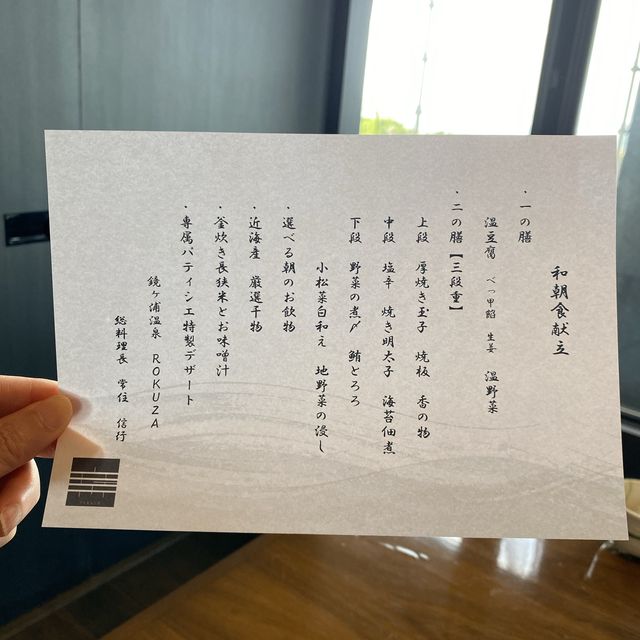 和朝食献立
・一の膳
温豆腐 べっ甲餡 生姜 温野菜
・二の膳【三段重】
上段 厚焼き玉子 焼板 香の物
中段 塩辛 焼き明太子 海苔佃煮
下段 野菜の煮〆 鮪とろろ
小松菜白和え 地野菜の浸し
・選べる朝のお飲物
・近海産 厳選干物
・釜炊き長狭米とお味噌汁
・専属パティシエ特製デザート
鏡ヶ浦温泉 ROKUZA
総料理長 常住 信行